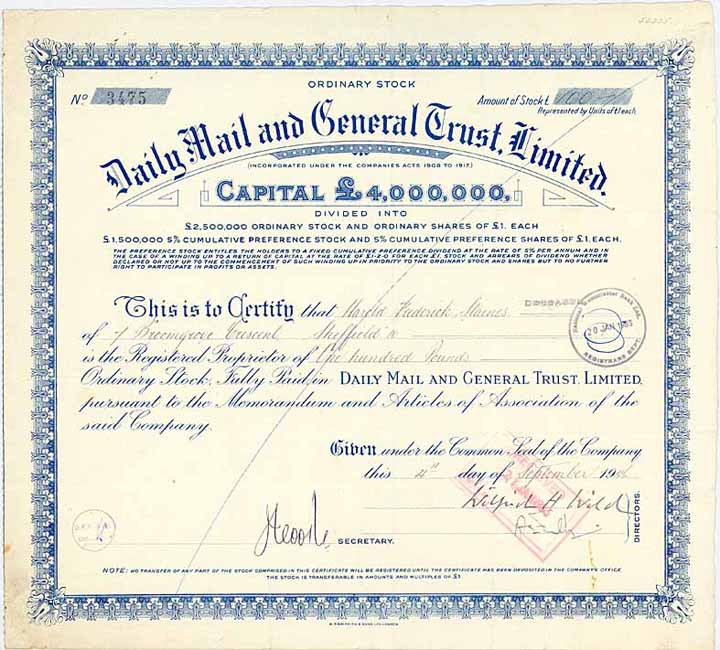 50335
ORDINARY STOCK
No 3475
Amount of Stock £ 100
Represented by Units of £1 each
Daily Mail and General Trust, Limited.
(INCORPORATED UNDER THE COMPANIES ACTS 1908 TO 1917.)
CAPITAL £4,000,000,
DIVIDED INTO
£2,500,000 ORDINARY STOCK AND ORDINARY SHARES OF £1. EACH
£1,500,000 5% CUMULATIVE PREFERENCE STOCK AND 5% CUMULATIVE PREFERENCE SHARES OF £1. EACH.
THE PREFERENCE STOCK ENTITLES THE HOLDERS TO A FIXED CUMULATIVE PREFERENCE DIVIDEND AT THE RATE OF 5% PER ANNUM AND IN
THE CASE OF A WINDING UP TO A RETURN OF CAPITAL AT THE RATE OF £1-2-0 FOR EACH £1. STOCK AND ARREARS OF DIVIDEND WHETHER
DECLARED OR NOT UP TO THE COMMENCEMENT OF SUCH WINDING UP IN PRIORITY TO THE ORDINARY STOCK AND SHARES BUT TO NO FURTHER
RIGHT TO PARTICIPATE IN PROFITS OR ASSETS.
DECEASED
This is to Certify that Harold Frederick Staines
of 7 Broomgrove Crescent, Sheffield 10
National Westminster Bank Ltd.
20 JAN 1983
REGISTRARS DEPT.
is the Registered Proprietor of One hundred Pounds
Ordinary Stock, Fully Paid, in DAILY MAIL AND GENERAL TRUST. LIMITED.
pursuant to the Memorandum and Articles of Association of the
said Company.
Given under the Common Seal of the Company
this 4th day of September 19
Wilfred H Wild
DIRECTORS.
SECRETARY.
NOTE: NO TRANSFER OF ANY PART OF THE STOCK COMPRISED IN THIS CERTIFICATE WILL BE REGISTERED UNTIL THE CERTIFICATE HAS BEEN DEPOSITED IN THE COMPANY'S OFFICE
THE STOCK IS TRANSFERABLE IN AMOUNTS AND MULTIPLES OF £1